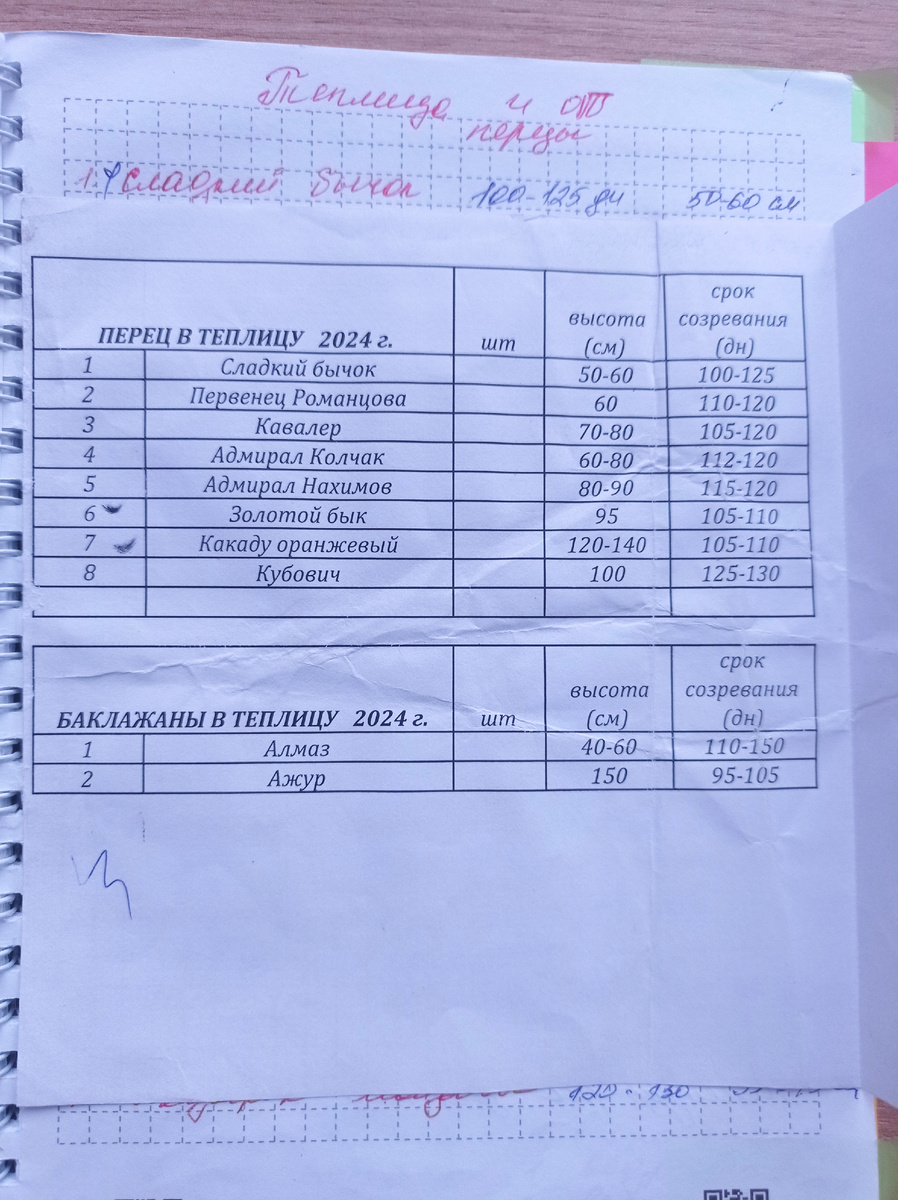 Теплица и ОТ
перцы
1. Сладкий бычок 100-125 дн 50-60 см
ПЕРЕЦ В ТЕПЛИЦУ 2024 г. шт высота (см) срок созревания (дн)
1 Сладкий бычок 50-60 100-125
2 Первенец Романцова 60 110-120
3 Кавалер 70-80 105-120
4 Адмирал Колчак 60-80 112-120
5 Адмирал Нахимов 80-90 115-120
6 Золотой бык 95 105-110
7 Какаду оранжевый 120-140 105-110
8 Кубович 100 125-130
БАКЛАЖАНЫ В ТЕПЛИЦУ 2024 г. шт высота (см) срок созревания (дн)
1 Алмаз 40-60 110-150
2 Ажур 150 95-105
120-130